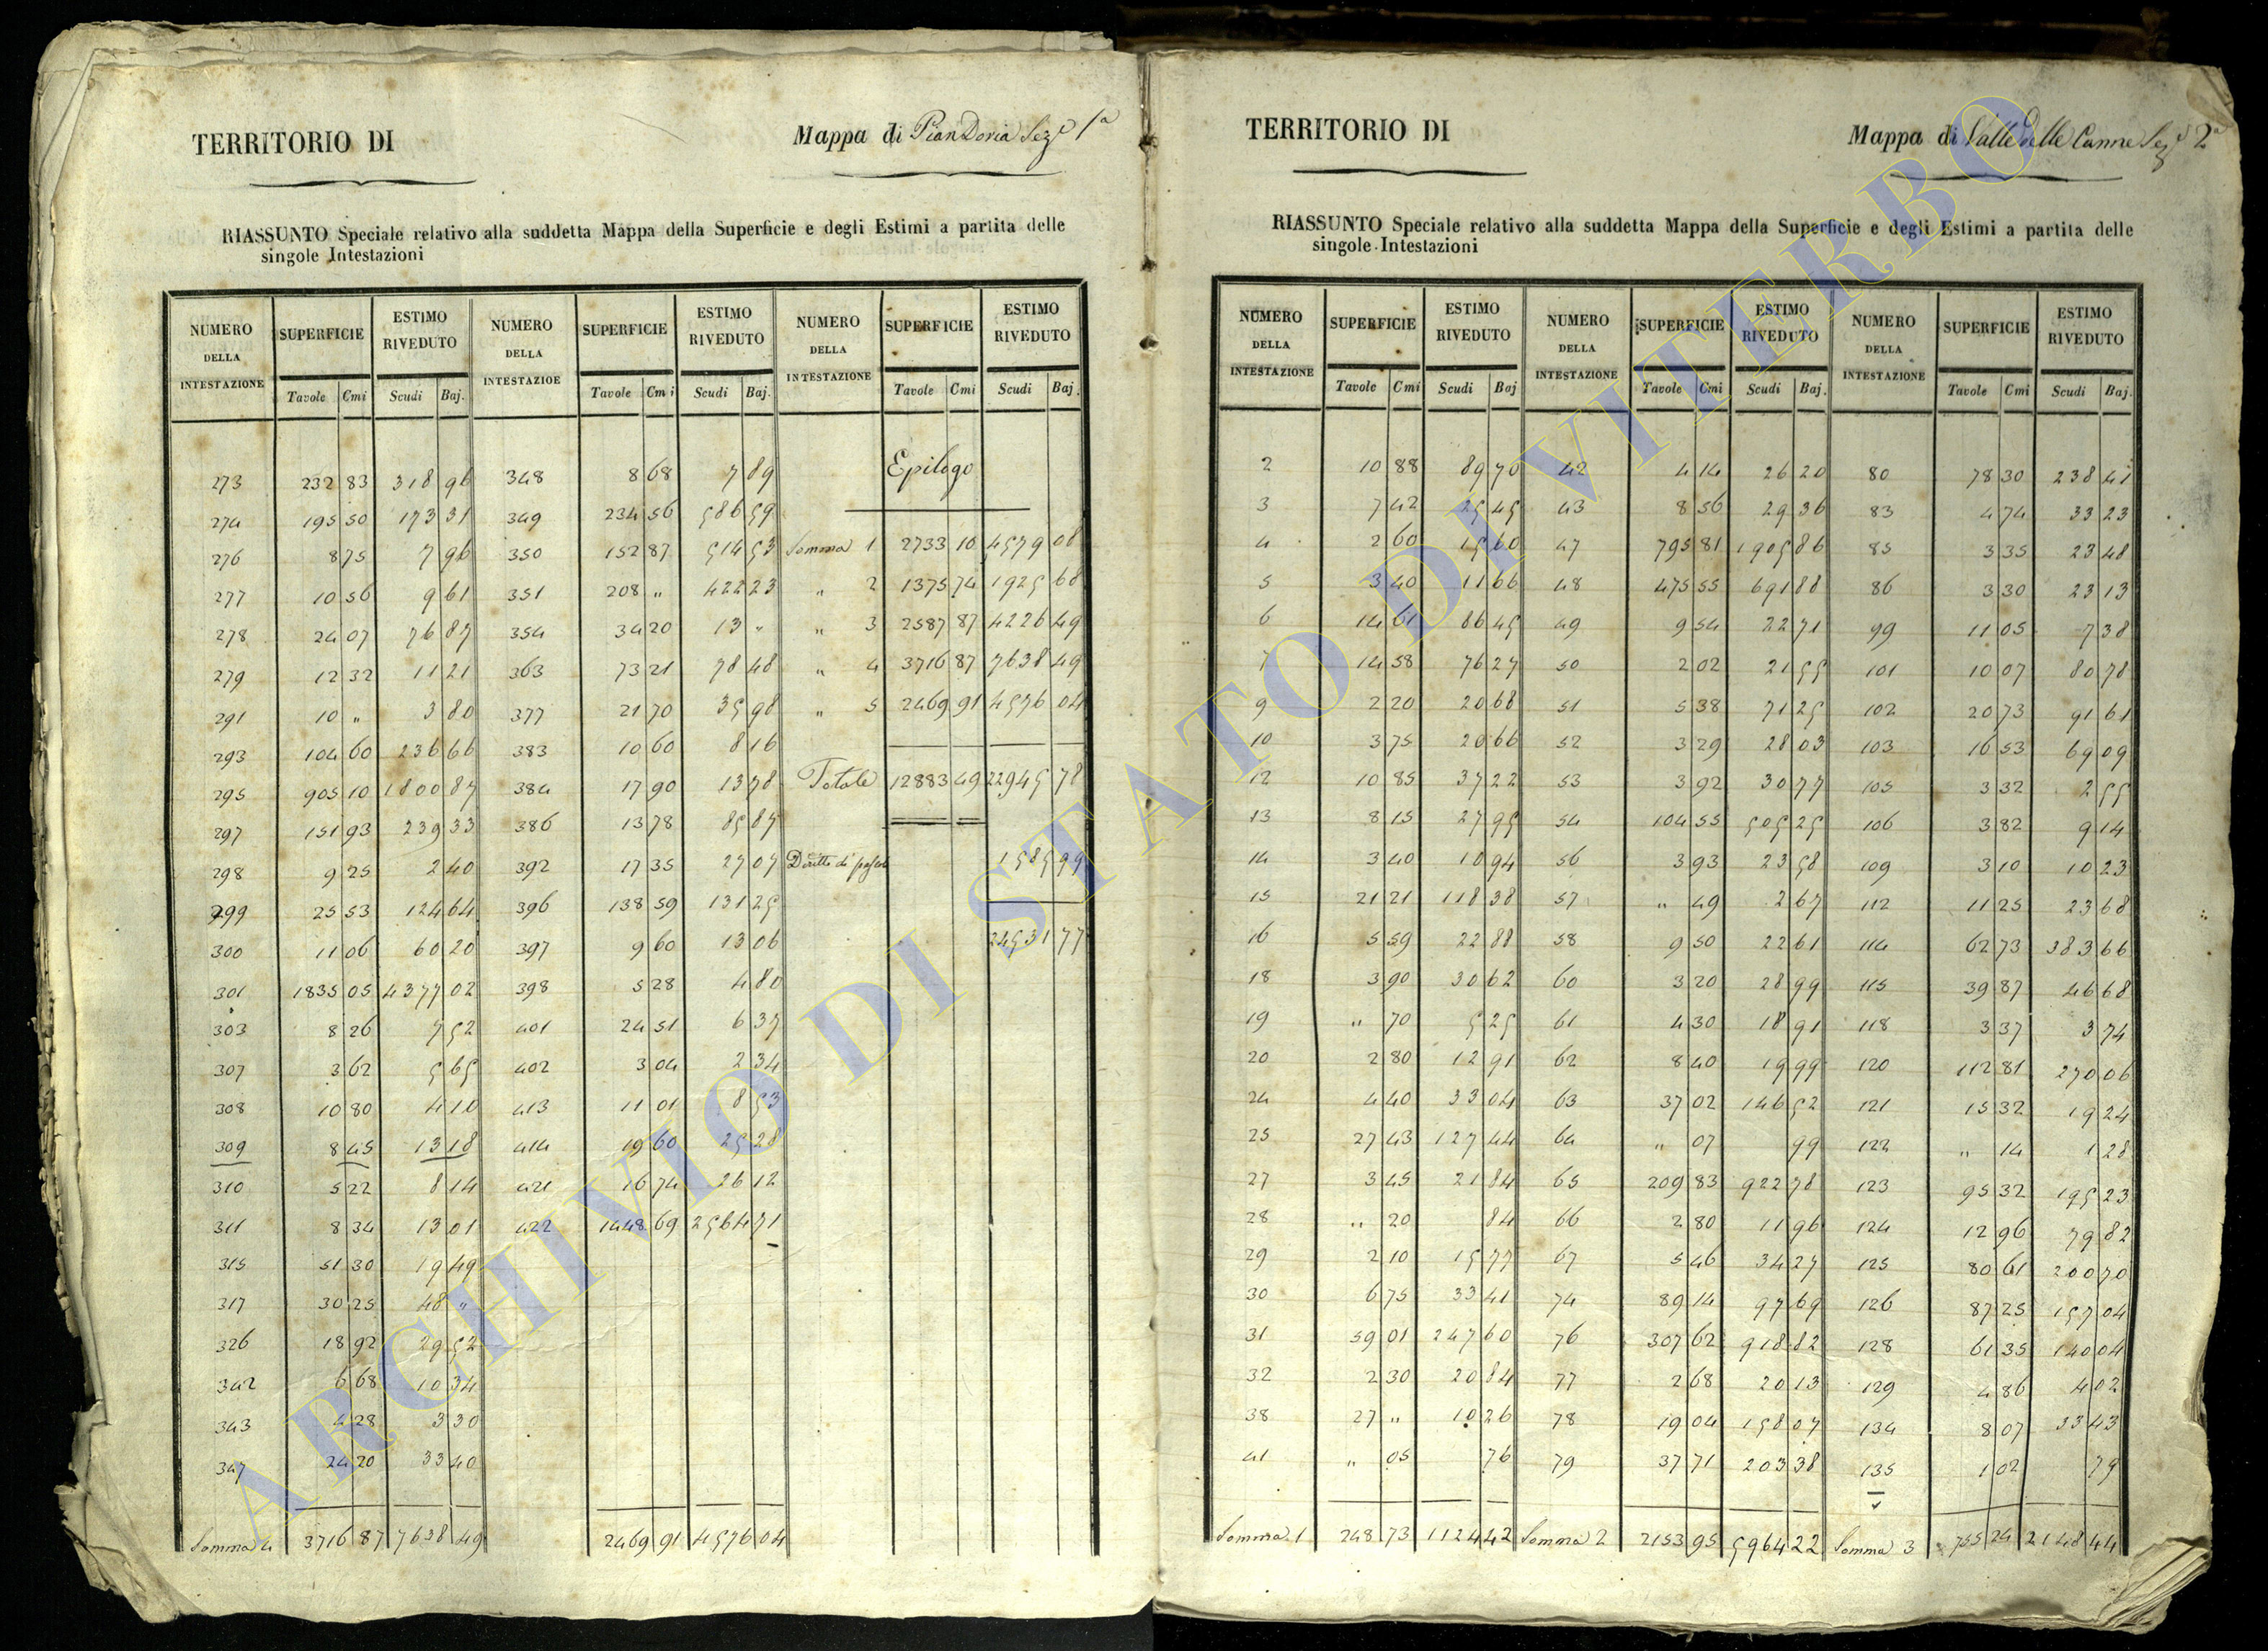 TERRITORIO DI
Mappa di Pian Doria Sez.e 1a
RIASSUNTO Speciale relativo alla suddetta Mappa della Superficie e degli Estimi a partita delle
singole Intestazioni
NUMERO DELLA INTESTAZIONE SUPERFICIE ESTIMO RIVEDUTO NUMERO DELLA INTESTAZIOE SUPERFICIE ESTIMO RIVEDUTO NUMERO DELLA INTESTAZIONE SUPERFICIE ESTIMO RIVEDUTO
Tavole Cmi Scudi Baj. Tavole Cmi Scudi Baj. Tavole Cmi Scudi Baj.
273 232 83 318 96 348 8 68 7 89 Epilogo
274 195 50 173 31 349 234 56 586 59
276 8 75 7 96 350 152 87 514 53 Somma 1 2733 10 4579 08
277 10 56 9 61 351 208 " 422 23 " 2 1375 74 1925 68
278 24 07 76 87 354 34 20 13 " " 3 2587 87 4226 49
279 12 32 11 21 363 73 21 78 48 " 4 3716 87 7638 49
291 10 " 3 80 377 21 70 35 98 " 5 2469 91 4576 04
293 104 60 236 66 383 10 60 8 16
295 905 10 1800 87 384 17 90 13 78 Totale 12883 49 22945 78
297 151 93 239 33 386 13 78 85 87
298 9 25 2 40 392 17 35 27 07 Diritto di pascolo 1585 99
299 25 53 124 64 396 138 59 131 25
300 11 06 60 20 397 9 60 13 06 24531 77
301 1835 05 4377 02 398 5 28 4 80
303 8 26 7 52 401 24 51 6 37
307 3 62 5 65 402 3 04 2 34
308 10 80 4 10 413 11 01 8 53
309 8 45 13 18 414 19 60 25 28
310 5 22 8 14 421 16 74 26 12
311 8 34 13 01 422 1448 69 2564 71
315 51 30 19 49
317 30 25 48 "
326 18 92 29 52
342 6 68 10 34
343 4 28 3 30
347 24 20 33 40
Somma 4 3716 87 7638 49 2469 91 4576 04
TERRITORIO DI
Mappa di Valle delle Canne Sez.e 2a
RIASSUNTO Speciale relativo alla suddetta Mappa della Superficie e degli Estimi a partita delle
singole Intestazioni
NUMERO DELLA INTESTAZIONE SUPERFICIE ESTIMO RIVEDUTO NUMERO DELLA INTESTAZIONE SUPERFICIE ESTIMO RIVEDUTO NUMERO DELLA INTESTAZIONE SUPERFICIE ESTIMO RIVEDUTO
Tavole Cmi Scudi Baj Tavole Cmi Scudi Baj. Tavole Cmi Scudi Baj.
2 10 88 89 70 42 4 14 26 20 80 78 30 238 41
3 7 42 25 45 43 8 56 29 36 83 4 74 33 23
4 2 60 15 60 47 795 81 1905 86 85 3 35 23 48
5 3 40 11 66 48 475 55 691 88 86 3 30 23 13
6 14 61 86 45 49 9 54 22 71 99 11 05 7 38
7 14 58 76 27 50 2 02 21 55 101 10 07 80 78
9 2 20 20 68 51 5 38 71 25 102 20 73 91 61
10 3 75 20 66 52 3 29 28 03 103 16 53 69 09
12 10 85 37 22 53 3 92 30 77 105 3 32 2 55
13 8 15 27 95 54 104 55 505 25 106 3 82 9 14
14 3 40 10 94 56 3 93 23 58 109 3 10 10 23
15 21 21 118 38 57 " 49 2 67 112 11 25 23 68
16 5 59 22 88 58 9 50 22 61 114 62 73 383 66
18 3 90 30 62 60 3 20 28 99 115 39 87 46 68
19 " 70 5 25 61 4 30 18 91 118 3 37 3 74
20 2 80 12 91 62 8 40 19 99 120 112 81 270 06
24 4 40 33 04 63 37 02 146 52 121 15 32 19 24
25 27 43 127 44 64 " 07 99 122 " 14 1 28
27 3 45 21 84 65 209 83 922 78 123 95 32 195 23
28 " 20 84 66 2 80 11 96 124 12 96 79 82
29 2 10 15 77 67 5 46 34 27 125 80 61 200 70
30 6 75 33 41 74 89 14 97 69 126 87 25 157 04
31 59 01 247 60 76 307 62 918 82 128 61 35 140 04
32 2 30 20 84 77 2 68 20 13 129 4 86 4 02
38 27 " 10 26 78 19 04 158 07 134 8 07 33 43
41 " 05 76 79 37 71 203 38 135 1 02 79
Somma 1 248 73 1124 42 Somma 2 2153 95 5964 22 Somma 3 755 24 2148 44
ARCHIVIO DI STATO DI VITERBO